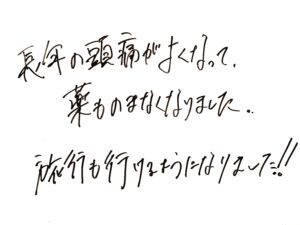 長年の頭痛がよくなって、
薬ものまなくなりました。
旅行も行けるようになりました!!